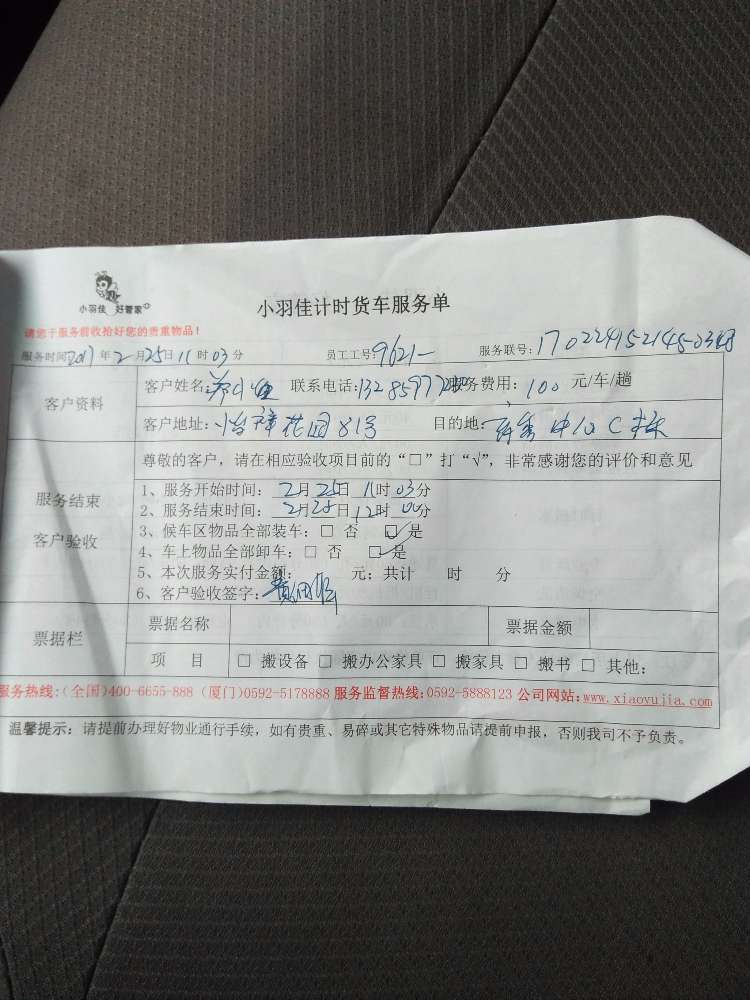 小羽佳 好管家
小羽佳计时货车服务单
请您于服务前收拾好您的贵重物品！
服务时间2017年2月25日11时03分 员工工号：9621 服务联号：170224152145-0348
客户资料
客户姓名： 联系电话：13285977 服务费用：100元/车/趟
客户地址： 花园81号 目的地： 中心C栋
尊敬的客户，请在相应验收项目前的“□”打“√”，非常感谢您的评价和意见
服务结束
客户验收
1、服务开始时间：2月25日11时03分
2、服务结束时间：2月25日12时00分
3、候车区物品全部装车：□ 否 □✓是
4、车上物品全部卸车：□ 否 □✓是
5、本次服务实付金额： 元；共计 时 分
6、客户验收签字：
票据栏
票据名称 票据金额
项 目 □ 搬设备 □ 搬办公家具 □ 搬家具 □ 搬书 □ 其他：
服务热线：(全国)400-6655-888 (厦门)0592-5178888 服务监督热线：0592-5888123 公司网站：www.xiaoyujia.com
温馨提示：请提前办理好物业通行手续，如有贵重、易碎或其它特殊物品请提前申报，否则我司不予负责。